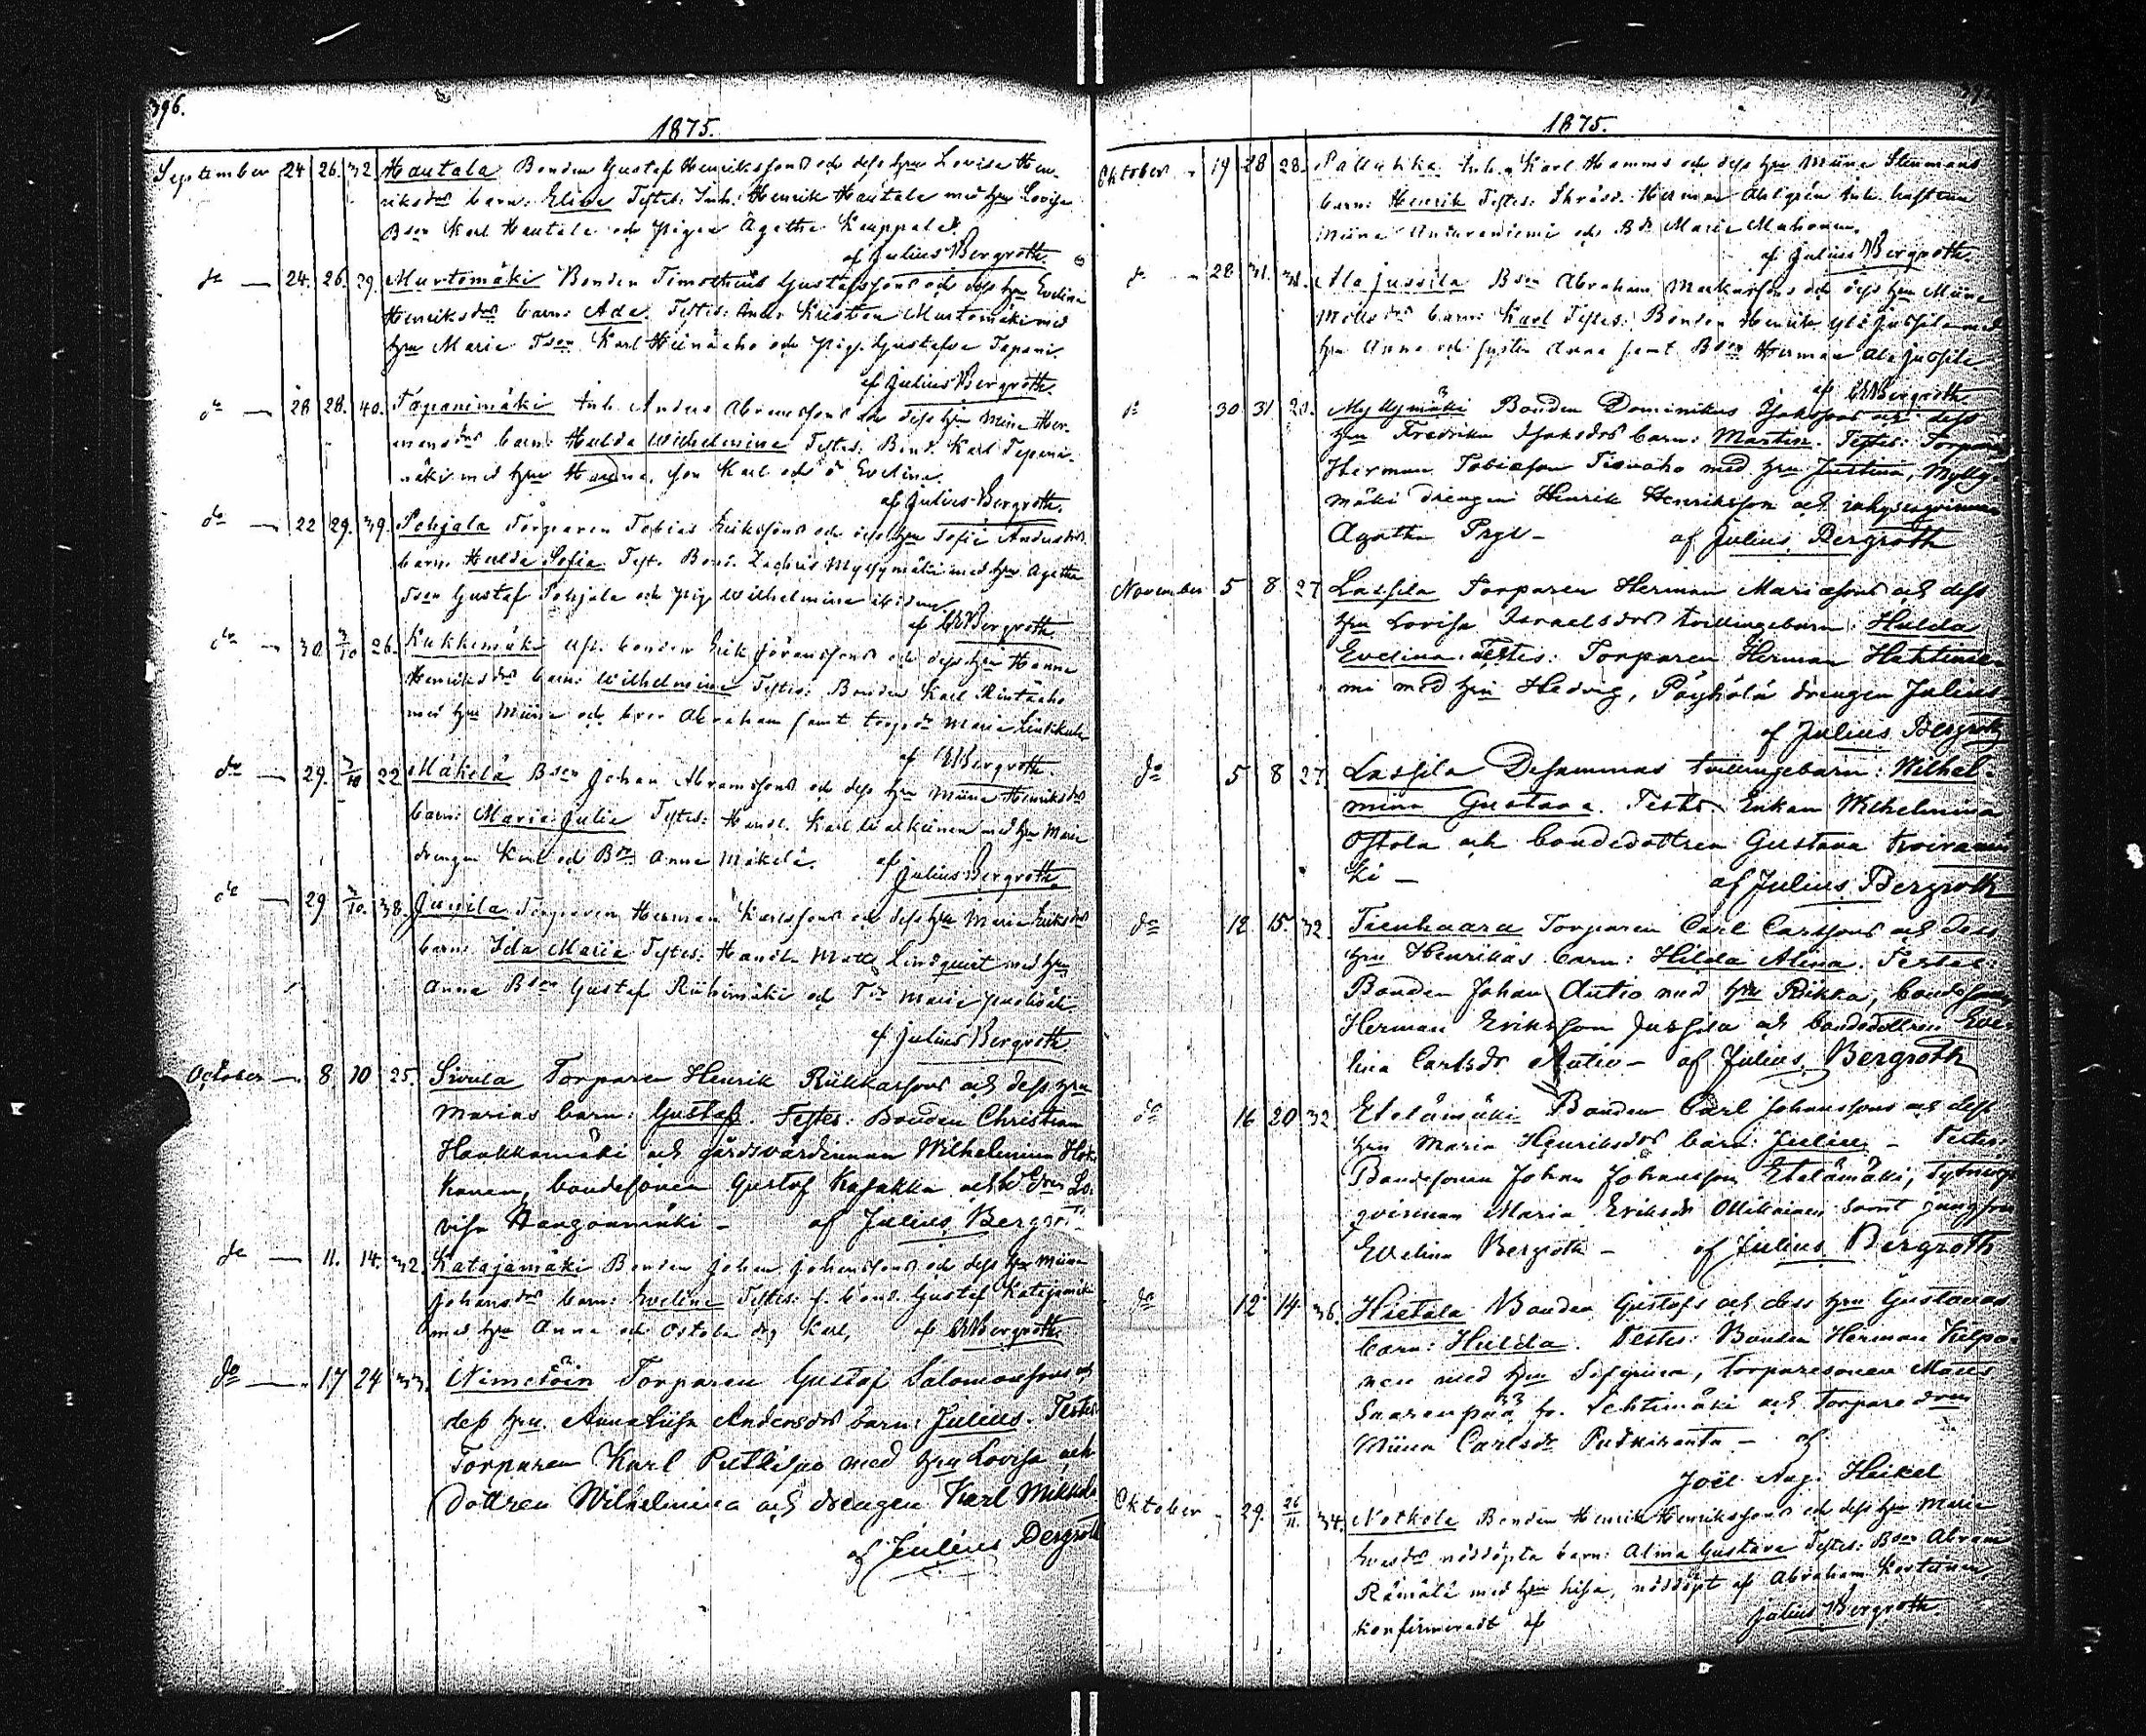 396.
1875.
September 24 26. 32 Hautala Bonden Gustaf Henrikssons och dess hru Lovisa Hen-
riksdrs barn: Elina Testes: Inh. Henrik Hautala med hru Lovisa
Bson Karl Hautala och pigan Agatha Kauppala.
af Julius Bergroth.
do — 24. 26. 29. Murtomäki Bonden Timotheus Gustafssons och dess hru Evelina
Henriksdrs barn: Ada. Testes: Kristian Murtomäki med
hru Maria Tson Karl Heinäaho och pig. Gustafva Tapani.
af Julius Bergroth.
do — 28 28. 40. Tapanimäki Inh. Anders Abramssons och dess hru Miina Her-
mansdrs barn: Hulda Wilhelmina Testes: Bond. Karl Tapani-
mäki med hru Hanna, son Karl och Evelina.
af Julius Bergroth.
do — 22 29. 39. Pohjala Torparen Tobias Erikssons och dess hru Sofia Andersdrs
barn: Hulda Sofia Test. Bond. Zachris Myllymäki med hru Agatha
Tson Gustaf Pohjala och pig. Wilhelmina ibidem.
af Bergroth
do — 30. 3/10 26. Kukkomäki bonden Erik Göranssons och dess hru Hanna
Henriksdrs barn: Wilhelmina Testes: Bonden Karl Rintaaho
med hru Miina och Abraham samt Maria
af Bergroth.
do — 29. 3/10 22 Mäkelä Bson Johan Abramssons och dess hru Miina Henriksdrs
barn: Maria Julia Testes: Handl. Karl Walkiinen med hru Maria
drengen Karl och Bdr Anna Mäkelä. af
Julius Bergroth.
do — 29 3/10. 38. Junila Torparen Herman Karlssons och dess hru Maria Eriksdrs
barn: Ida Maria Testes: Handl. Matts Lindqvist med hru
Anna Bson Gustaf Riihimäki och Tdr Maria
af Julius Bergroth.
October — 8 10 25. Sivula Torparen Henrik Riikkassons och dess hru
Marias barn: Gustaf. Testes: Bonden Christian
Haukkamäki och gårdsvärdinnan Wilhelmina
bondesonen Gustaf Kasakka och Lo-
visa Haugonmäki — af Julius Bergroth
do — 11. 14. 32. Katajamäki Bonden Johan Johanssons och dess hru Miina
Johansdrs barn: Evelina Testes: f. bond. Gustaf Katajamäki
med hru Anna och Ostola drg Karl, af Bergroth.
do — 17 24 33. Nimetöin Torparen Gustaf Salomonssons och
dess hru Anna Liisa Andersdrs barn: Julius. Testes
Torparen Karl med hru Lovisa och
dottren Wilhelmina och drengen Karl
af Julius Bergroth
1875.
Oktober 19 28 28. Inh. Karl Hammas och dess hru Miina Stenmans
barn: Henrik Testes: Skrädd. Herman Ahlgrén Inh. hustrun
Miina Anturaniemi och Bdr Maria
af Julius Bergroth.
do — 28 31. 31. Ala Jussila Bson Abraham Makarssons och dess hru Miina
Mattsdrs barn: Karl Testes: Bonden Henrik Yli Jussila med
hru Anna och syster Anna samt Bson Herman Ala Jussila
af Bergroth
do 30 31 20. Myllymäki Bonden Dominikus Isakssons och dess
hru Fredrika Isaksdrs barn: Martin. Testes: Torparen
Herman Tobiasson Tienaho med hru Justina, Mylly-
mäki drengen Henrik Henriksson och inhysesqvinnan
Agatha — af Julius Bergroth
November 5 8 27 Lassila Torparen Herman Mariassons och dess
hru Lovisa Israelsdrs tvillingebarn: Hulda
Evelina. Testes: Torparen Herman
mi med hru Hedvig, Pöyhölä drengen Julius
af Julius Bergroth
do 5 8 27 Lassila Desammas tvillingebarn: Wilhel-
mina Gustava. Testes Enkan Wilhelmina
Ostola och bondedottren Gustava Koiramä-
ki — af Julius Bergroth
do 12 15. 32. Tienhaara Torparen Carl Carlssons och dess
hru Henrikas barn: Hilda Alina. Testes:
Bonden Johan Autio med hru Riikka, bondesonen
Herman Eriksson Jussila och bondedottren Eve-
lina Carlsdr Autio — af Julius Bergroth
do 16 20 32. Etelämäki Bonden Carl Johanssons och dess
hru Maria Henriksdrs barn: Julius — Testes
Bondesonen Johan Johansson Etelämäki,
qvinnan Maria Eriksdr Ollikainen samt jungfru
Evelina Bergroth — af Julius Bergroth
do 12 14 36. Hietala Bonden Gustafs och dess hru Gustavas
barn: Hulda. Testes: Bonden Herman Kilpo-
nen med hru Sefgrina, torparesonen Matts
Saarenpää fr. Lehtimäki och Torparedren
Miina Carlsdr — af
Joël Aug. Heikel
Oktober 29. 26/11. 34. Notkola Bonden Henrik Henrikssons och dess hru Maria
Evasdrs nöddöpta barn: Alma Gustava Testes: Bson Abram
Rämälä med hru Lisa, nöddöpt af Abraham
konfirmeradt af Julius Bergroth.